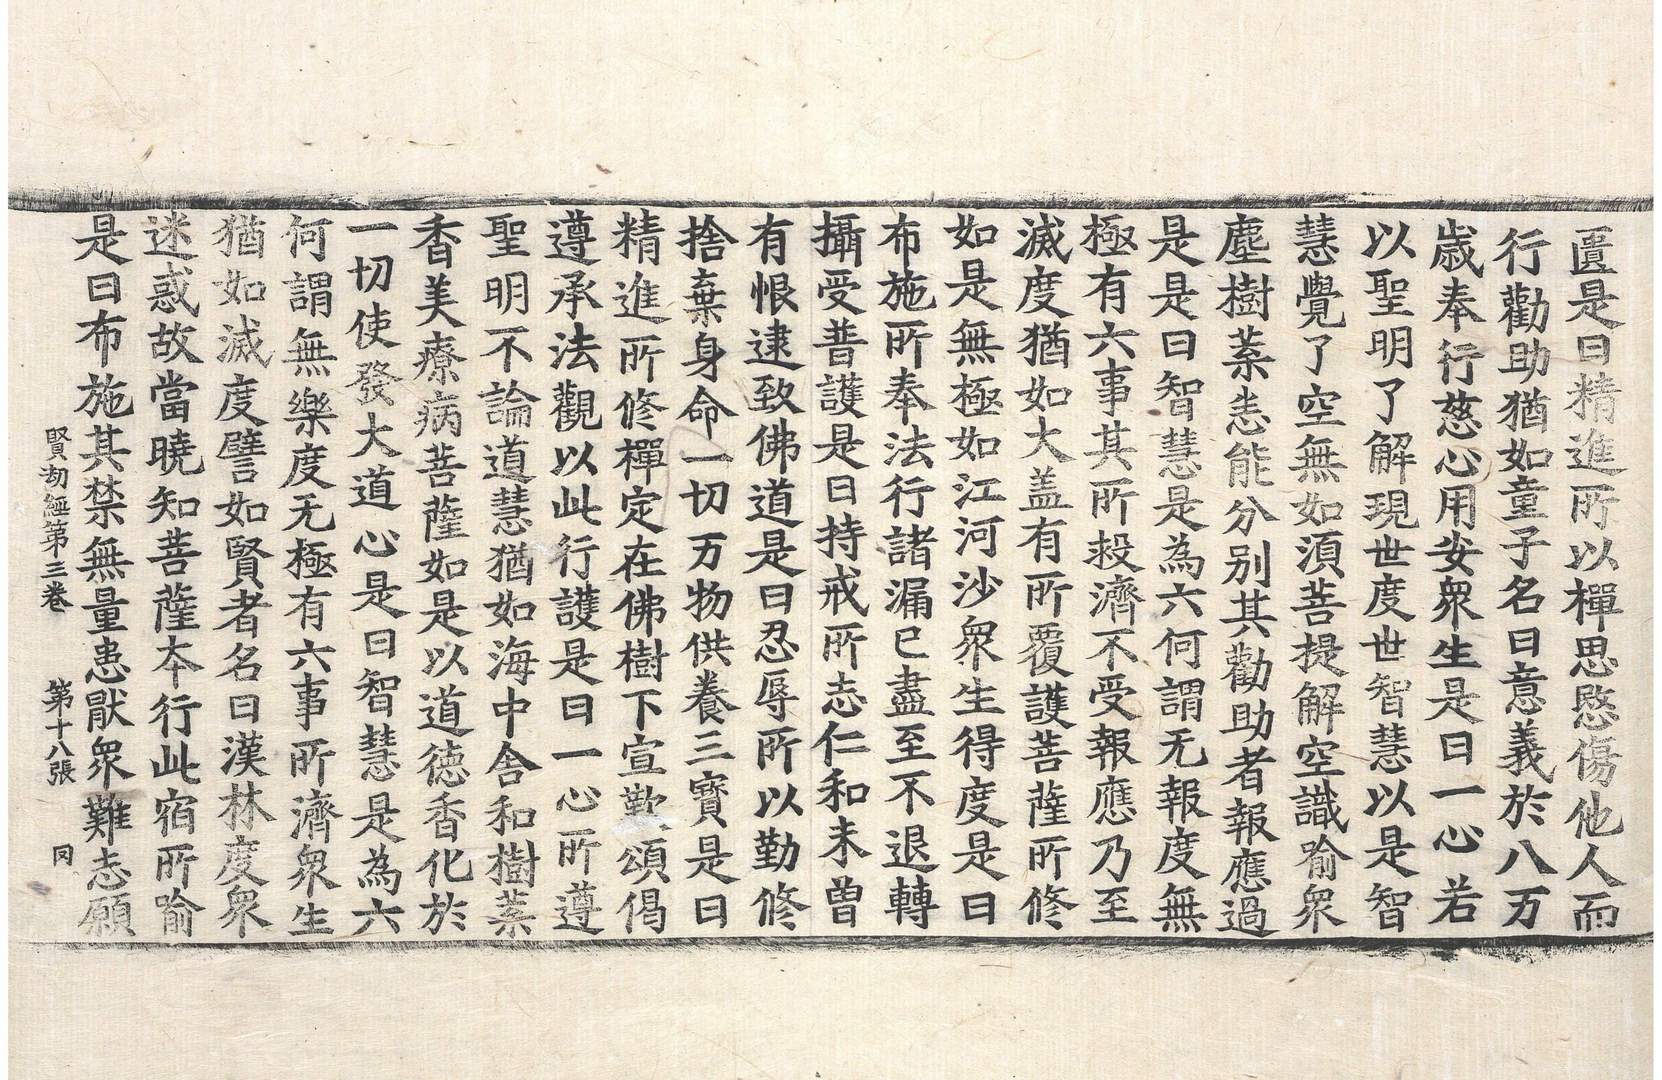 匱是曰精進所以禪思愍傷他人而
行勸助猶如童子名曰意義於八万
歲奉行慈心用安衆生是曰一心若
以聖明了解現世度世智慧以是智
慧覺了空無如湏菩提解空識喻衆
塵樹葉恙能分別其勸助者報應過
是是曰智慧是為六何謂无報度無
極有六事其所救濟不受報應乃至
滅度猶如大盖有所覆護菩薩所修
如是無極如江河沙衆生得度是曰
布施所奉法行諸漏已盡至不退轉
攝受普護是曰持戒所志仁和未曽
有恨逮致佛道是曰忍辱所以勤修
捨棄身命一切万物供養三寶是曰
精進所修禪定在佛樹下宣歎頌偈
遵承法觀以此行護是曰一心所遵
聖明不論道慧猶如海中舎和樹葉
香美療病菩薩如是以道德香化於
一切使發大道心是曰智慧是為六
何謂無樂度无極有六事所濟衆生
猶如滅度譬如賢者名曰漢林度衆
迷惑故當曉知菩薩夲行此宿所喻
是曰布施其禁無量患猒衆難志願
賢劫經第三卷 第十八張 同